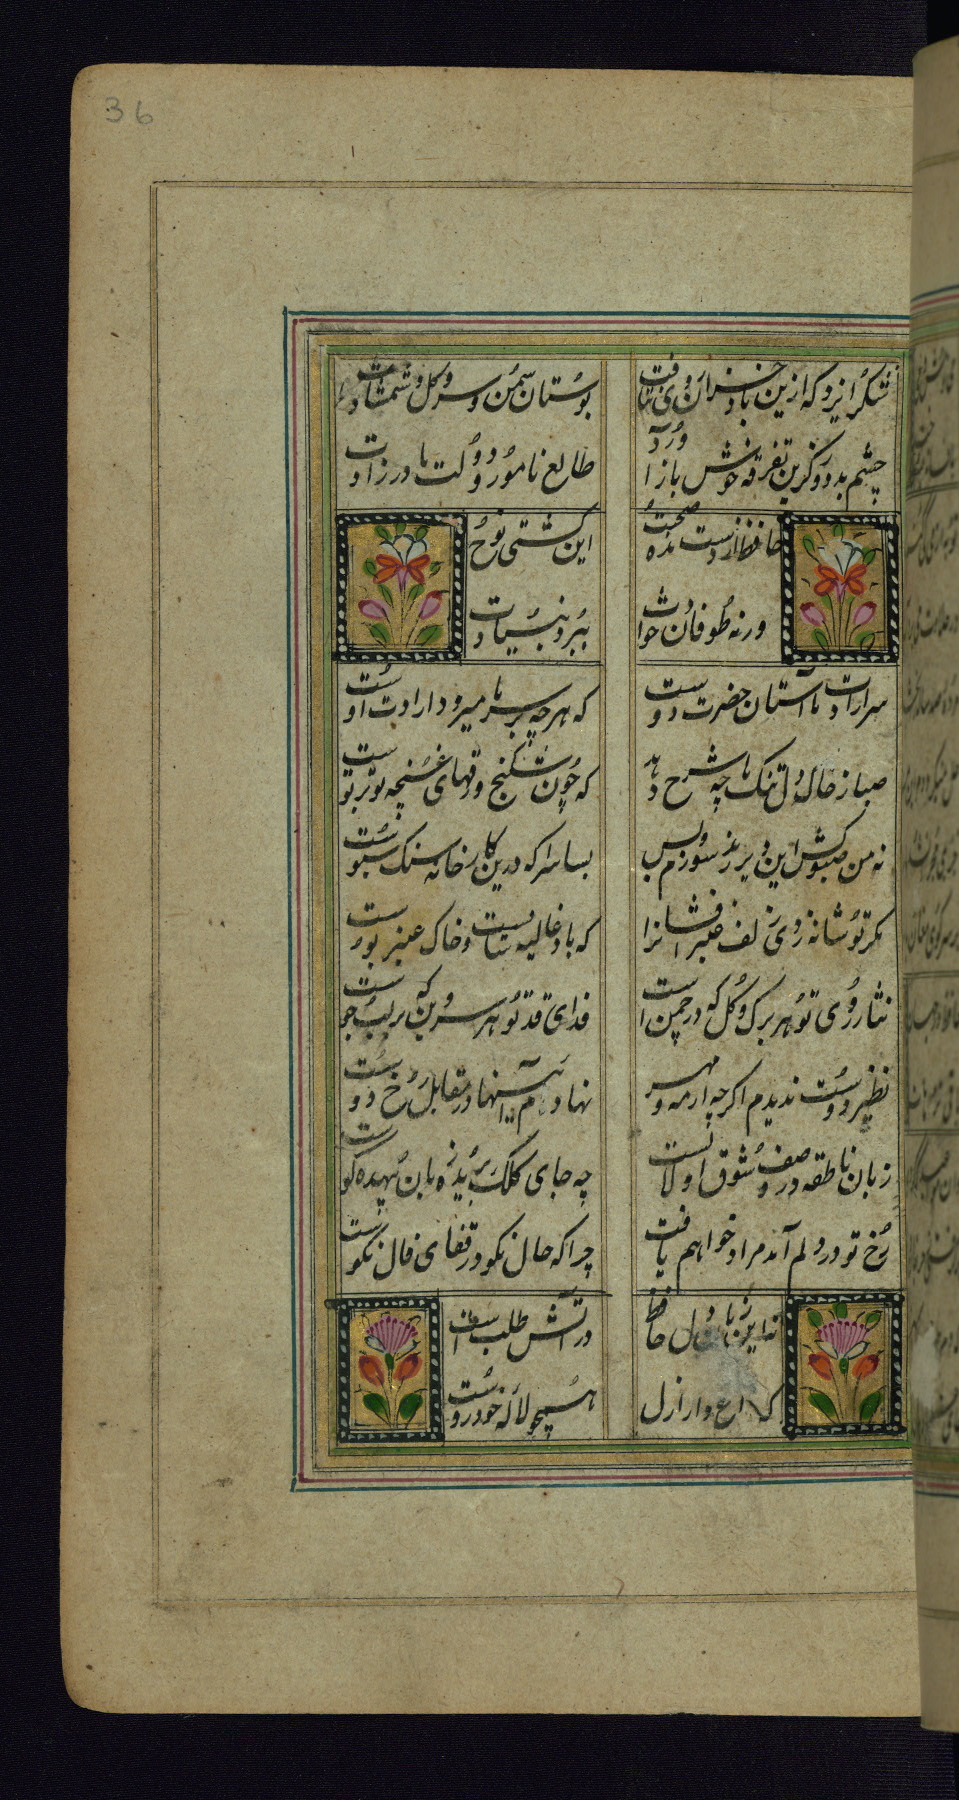 36
شکر ایزد که ازین باد خزان رخنه نیافت
بوستان سمن و سرو و گل و شمشادت
چشم بد دور کزین تفرقه خوش باز آورد
طالع نامور و دولت مادرزادت
حافظ از دست مده صحبت
این کشتی نوح
ورنه طوفان حوادث
ببرد بنیادت
سر ارادت ما آستان حضرت دوست
که هرچه بر سر ما میرود ارادت اوست
صبا ز حال دل تنک ما چه شرح دهد
که چون شکنج ورقهای غنچه تو بر توست
نه من سبوکش این دیر رند سوزم و بس
بسا سرا که درین کارخانه سنک و سبوست
مکر تو شانه زدی زلف عنبرافشان را
که باد غالیه سا است و خاک عنبر بوست
نثار روی تو هر برک گل که در چمن است
فدای قد تو هر سروبن که بر لب جوست
نظیر دوست ندیدم اکرچه از مه و مهر
نهادم آینها در مقابل رخ دوست
زبان ناطقه در وصف شوق او لالست
چه جای کلک بریده زبان بیهده کوست
رخ تو در دلم آمد مراد خواهم یافت
چرا که حال نکو در قفای فال نکوست
نه این زمان دل حافظ
در آتش طلب است
که داغ دار ازل
همچو لاله خودروست